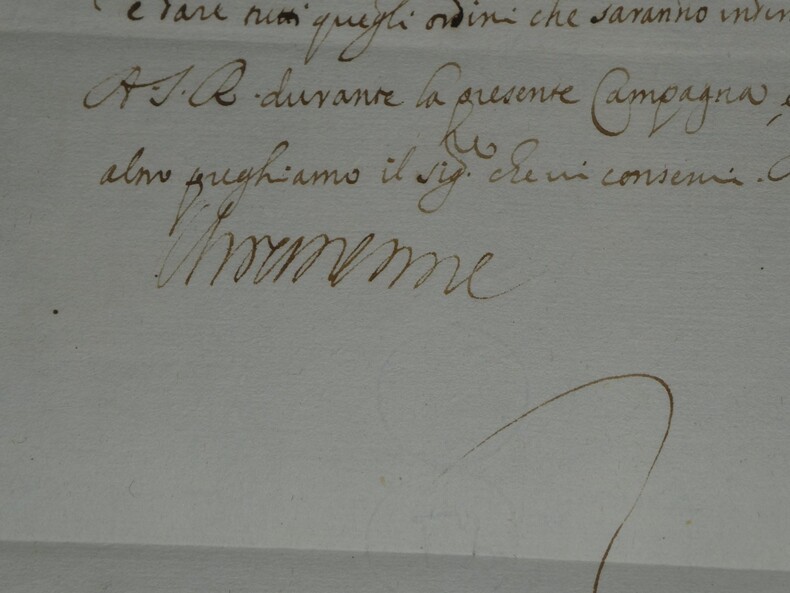 e dare tutti quegli ordini che saranno
A. S. R. durante la presente Campagna
altro preghiamo il sig.re che vi conservi.